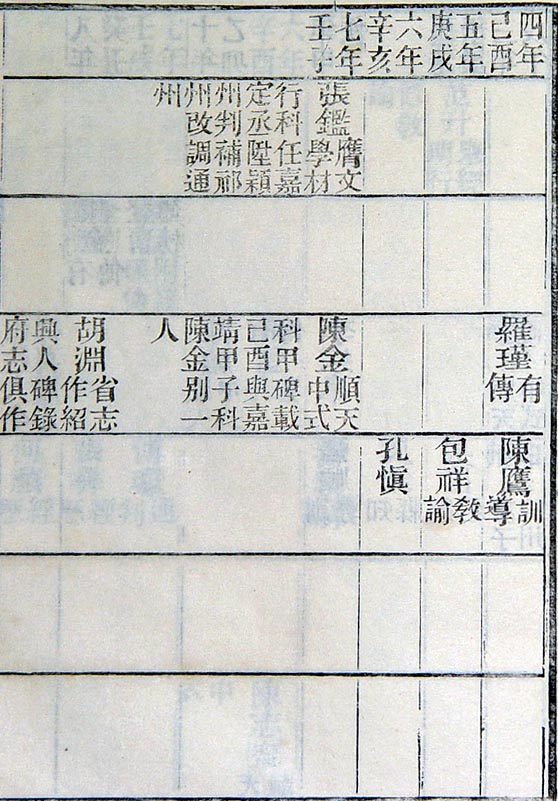 四年
己酉
五年
庚戌
六年
辛亥
七年
壬子
張鑑
膺文
學材
行科任嘉
定丞陞潁
州判補祁
州改調通
州
羅瑾
有
傳
陳金
順天
中式
科甲碑載
己酉與嘉
靖甲子科
陳金别一
人
胡淵
省志
作紹
興人碑錄
府志俱作
陳鷹
訓
導
包祥
教
諭
孔愼